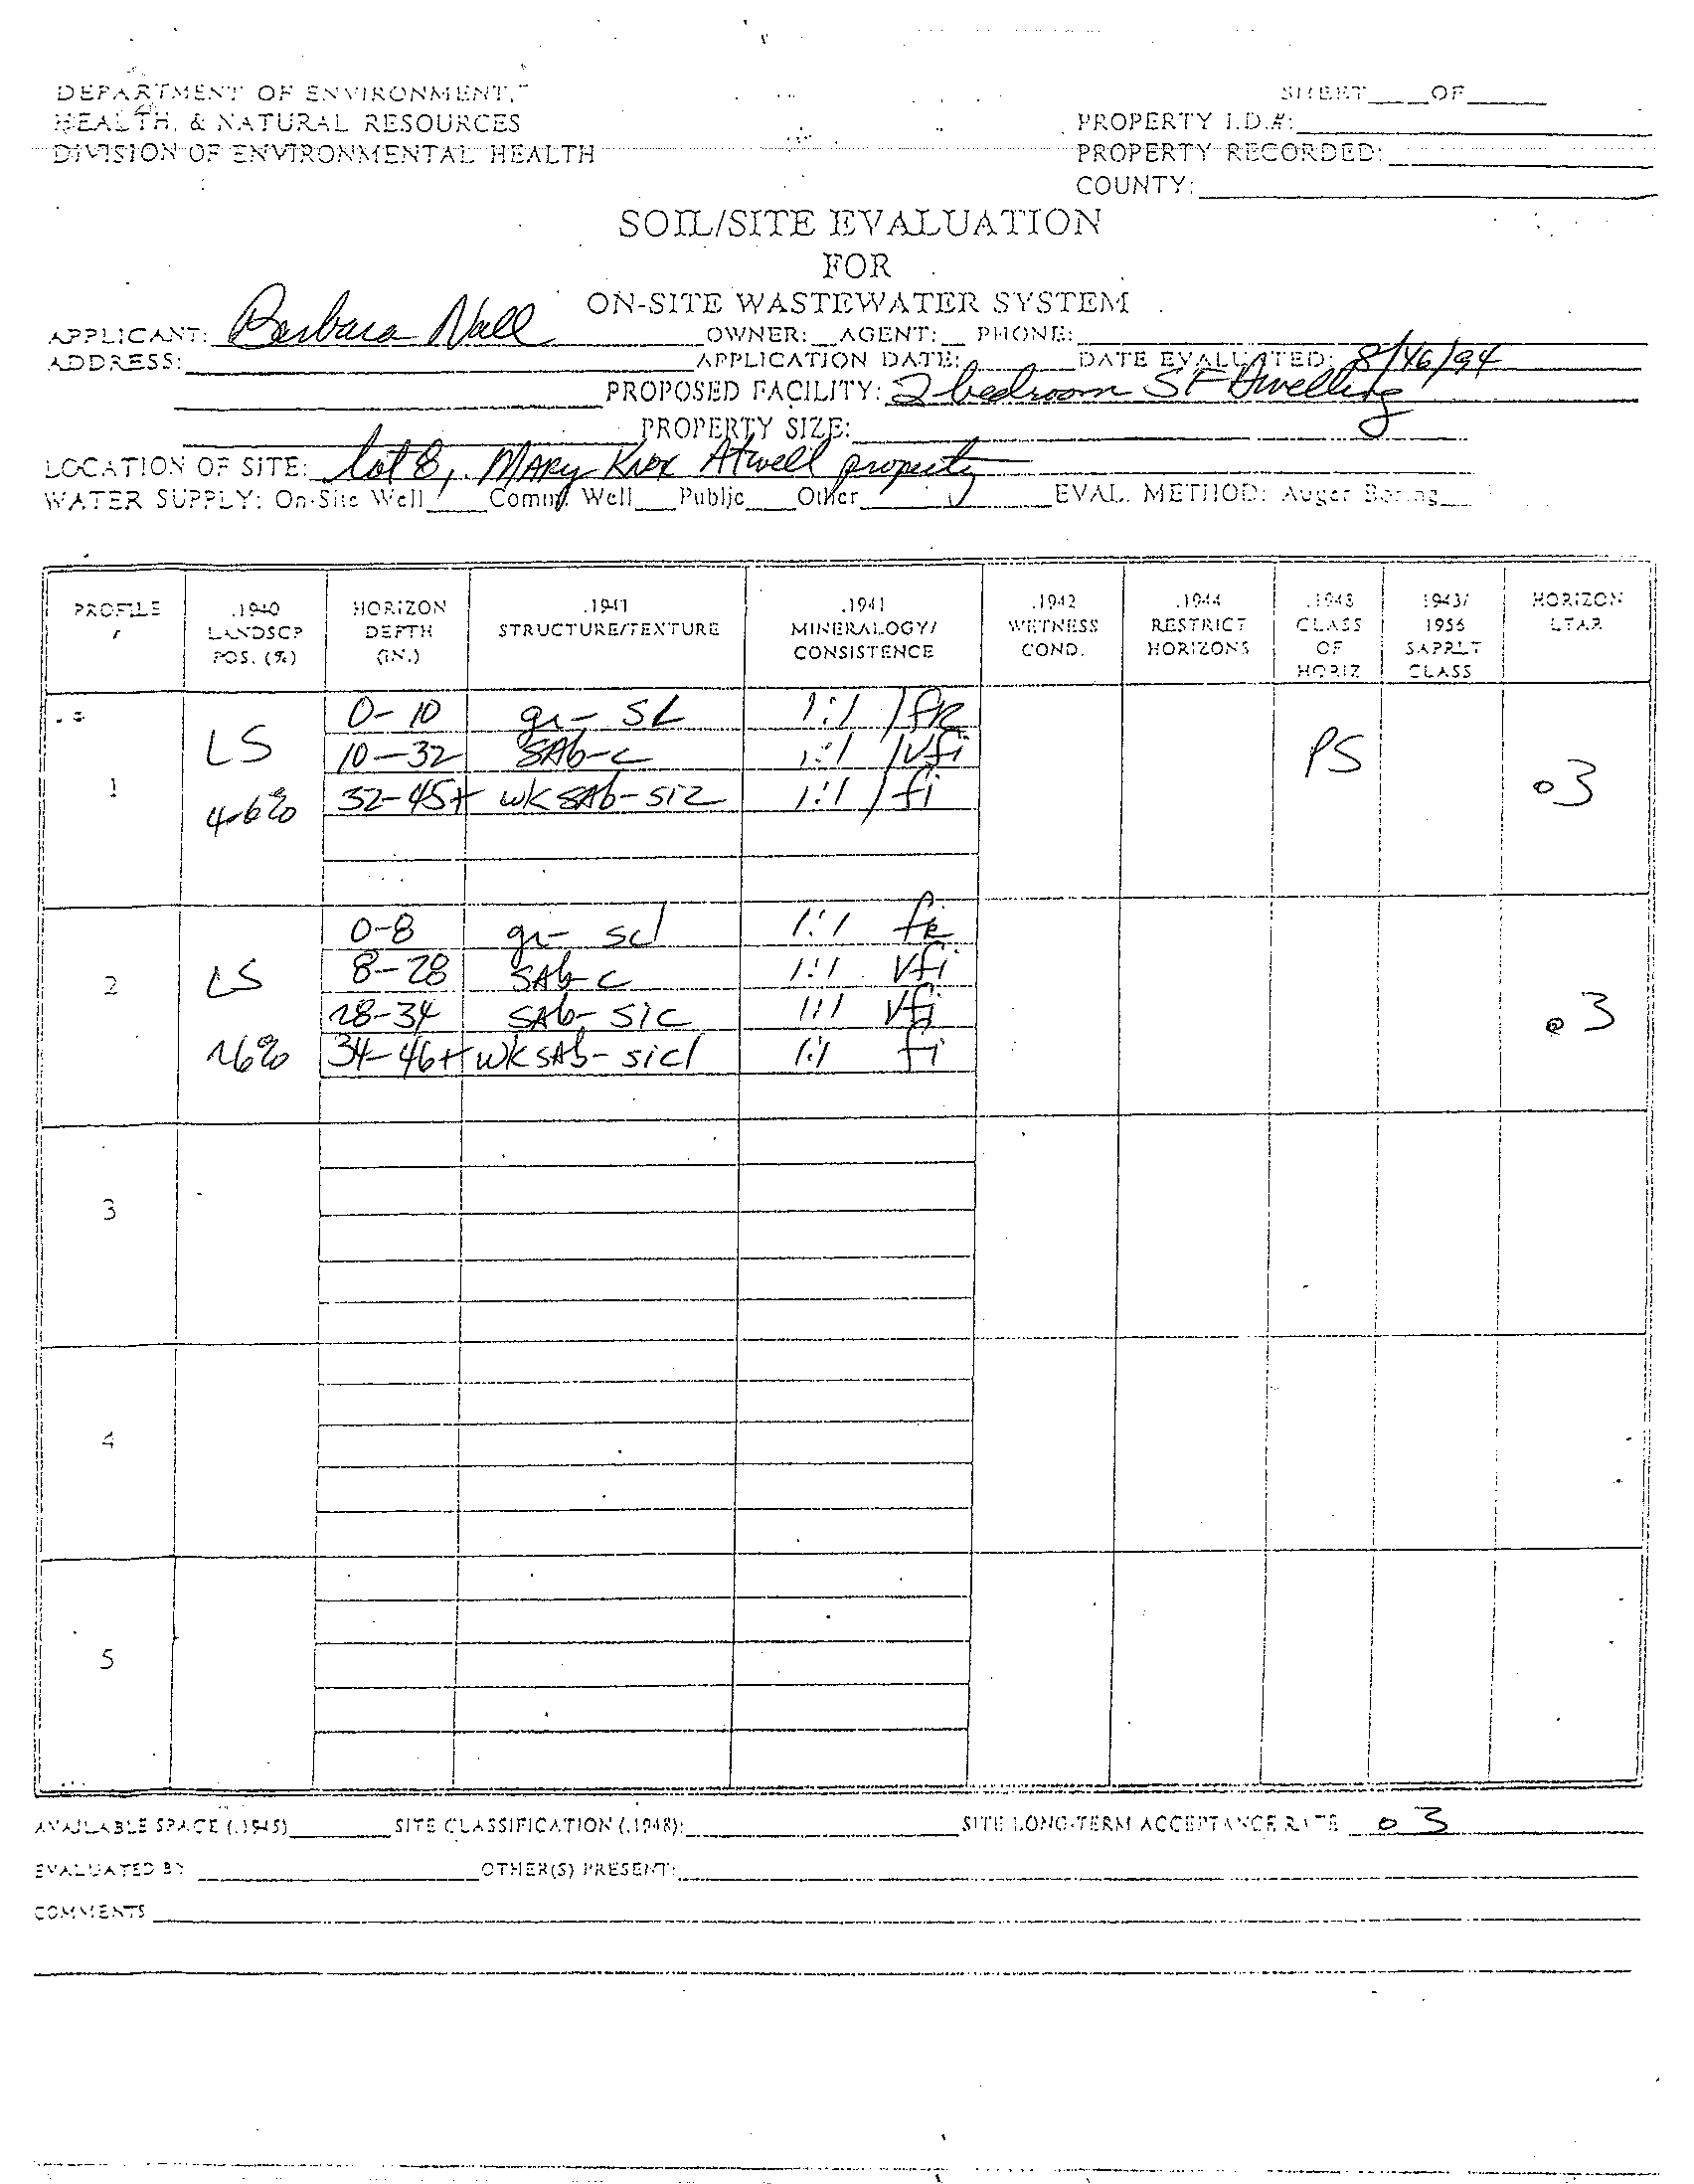 DEPARTMENT OF ENVIRONMENT,
HEALTH, & NATURAL RESOURCES
DIVISION OF ENVIRONMENTAL HEALTH
SHEET____OF____
PROPERTY I.D.#:
PROPERTY RECORDED:
COUNTY:
SOIL/SITE EVALUATION
FOR
ON-SITE WASTEWATER SYSTEM
APPLICANT: Barbara Nall OWNER:__AGENT:__ PHONE:
ADDRESS: APPLICATION DATE: DATE EVALUATED: 8/ /94
PROPOSED FACILITY: 2 bedroom SF Dwelling
PROPERTY SIZE:
LOCATION OF SITE: Lot 8, MARY KNOX Atwell property
WATER SUPPLY: On-Site Well____Comm. Well___Public____Other EVAL. METHOD: Auger Boring
PROFILE # .1940 LANDSCP POS. (%) HORIZON DEPTH (IN.) .1941 STRUCTURE/TEXTURE .1941 MINERALOGY/ CONSISTENCE .1942 WETNESS COND. .1944 RESTRICT HORIZONS .1943 CLASS OF HORIZ 1943/ 1956 SAPRLT CLASS HORIZON LTAR
1 LS 4-6% PS .3
0-10 gr- SL 1:1 /fR
10-32 SAb-C 1:1 /Vfi
32-45+ wk SAb- 1:1 / fi
2 LS ~6% .3
0-8 gr- scl 1:1 fR
8-28 SAb-C 1:1 Vfi
28-34 SAb- SIC 1:1 Vfi
34-46+ wk SAb- sicl 1:1 fi
3
4
5
AVAILABLE SPACE (.1945) SITE CLASSIFICATION (.1948): SITE LONG-TERM ACCEPTANCE RATE .3
EVALUATED BY OTHER(S) PRESENT:
COMMENTS